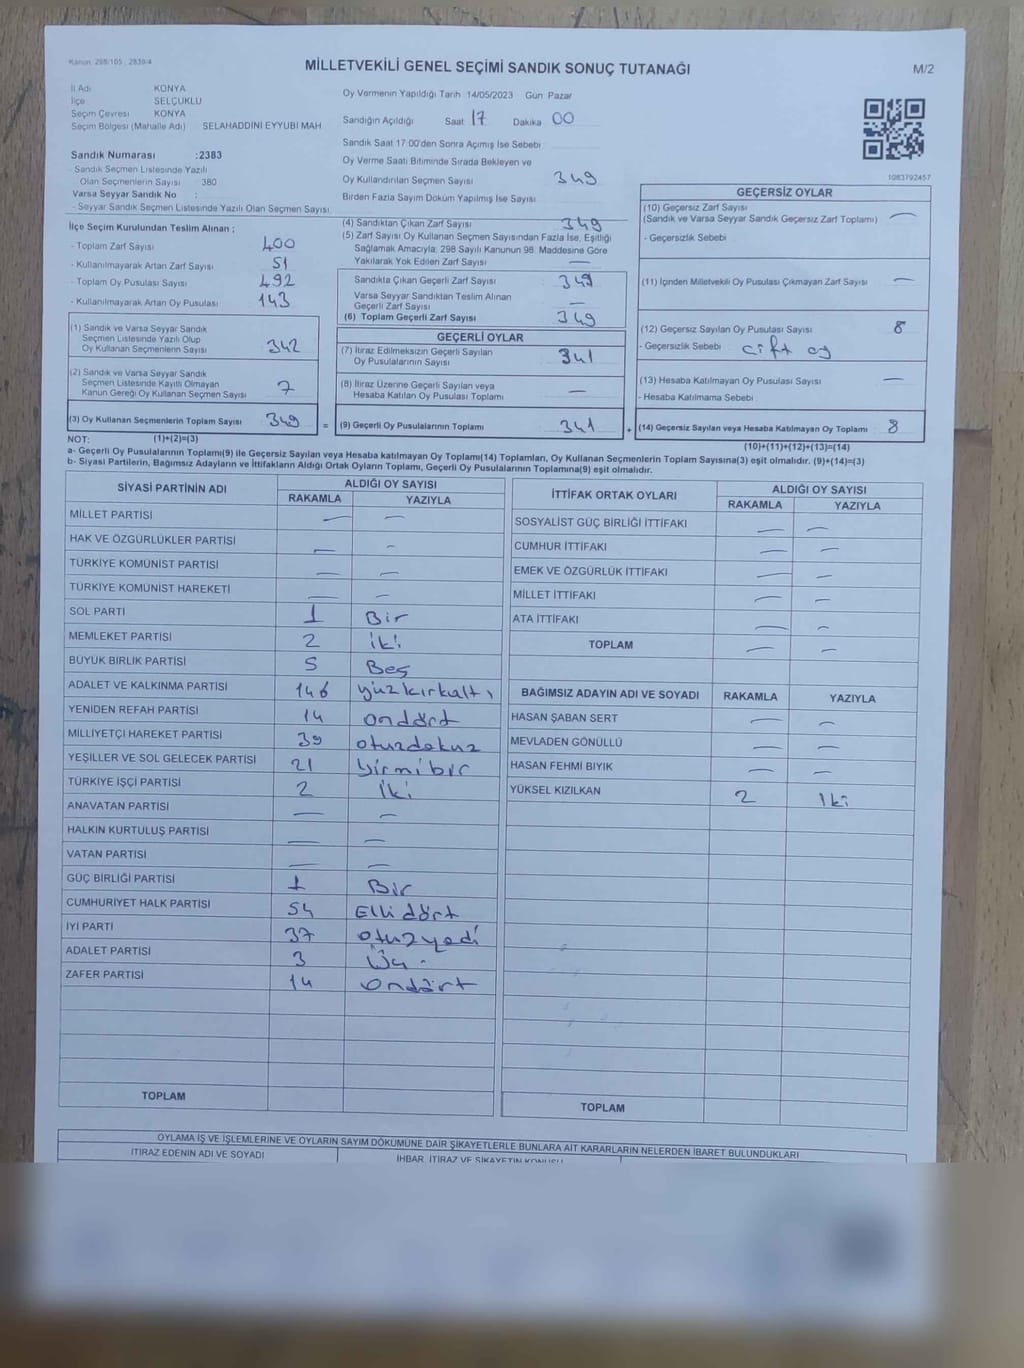 Kanun: 298/105 ; 2839/4
MİLLETVEKİLİ GENEL SEÇİMİ SANDIK SONUÇ TUTANAĞI
M/2
İl Adı KONYA
İlçe SELÇUKLU
Seçim Çevresi KONYA
Seçim Bölgesi (Mahalle Adı) SELAHADDİNİ EYYUBİ MAH.
Sandık Numarası :2383
- Sandık Seçmen Listesinde Yazılı
Olan Seçmenlerin Sayısı : 380
Varsa Seyyar Sandık No :
- Seyyar Sandık Seçmen Listesinde Yazılı Olan Seçmen Sayısı:
Oy Vermenin Yapıldığı Tarih 14/05/2023 Gün Pazar
Sandığın Açıldığı Saat 17 Dakika 00
Sandık Saat 17:00'den Sonra Açımış İse Sebebi
Oy Verme Saati Bitiminde Sırada Bekleyen ve
Oy Kullandırılan Seçmen Sayısı 349
Birden Fazla Sayım Döküm Yapılmış İse Sayısı
1083792457
İlçe Seçim Kurulundan Teslim Alınan ;
- Toplam Zarf Sayısı 400
- Kullanılmayarak Artan Zarf Sayısı 51
- Toplam Oy Pusulası Sayısı 492
- Kullanılmayarak Artan Oy Pusulası 143
(1) Sandık ve Varsa Seyyar Sandık
Seçmen Listesinde Yazılı Olup
Oy Kullanan Seçmenlerin Sayısı 342
(2) Sandık ve Varsa Seyyar Sandık
Seçmen Listesinde Kayıtlı Olmayan
Kanun Gereği Oy Kullanan Seçmen Sayısı 7
(3) Oy Kullanan Seçmenlerin Toplam Sayısı 349 =
(4) Sandıktan Çıkan Zarf Sayısı 349
(5) Zarf Sayısı Oy Kullanan Seçmen Sayısından Fazla İse, Eşitliği
Sağlamak Amacıyla; 298 Sayılı Kanunun 98. Maddesine Göre
Yakılarak Yok Edilen Zarf Sayısı —
Sandıkta Çıkan Geçerli Zarf Sayısı 349
Varsa Seyyar Sandıktan Teslim Alınan
Geçerli Zarf Sayısı —
(6) Toplam Geçerli Zarf Sayısı 349
GEÇERLİ OYLAR
(7) İtiraz Edilmeksizin Geçerli Sayılan
Oy Pusulalarının Sayısı 341
(8) İtiraz Üzerine Geçerli Sayılan veya
Hesaba Katılan Oy Pusulası Toplamı —
(9) Geçerli Oy Pusulalarının Toplamı 341 +
GEÇERSİZ OYLAR
(10) Geçersiz Zarf Sayısı
(Sandık ve Varsa Seyyar Sandık Geçersiz Zarf Toplamı) —
- Geçersizlik Sebebi
(11) İçinden Milletvekili Oy Pusulası Çıkmayan Zarf Sayısı —
(12) Geçersiz Sayılan Oy Pusulası Sayısı 8
- Geçersizlik Sebebi çift oy
(13) Hesaba Katılmayan Oy Pusulası Sayısı —
- Hesaba Katılmama Sebebi
(14) Geçersiz Sayılan veya Hesaba Katılmayan Oy Toplamı 8
NOT: (1)+(2)=(3) (10)+(11)+(12)+(13)=(14)
a- Geçerli Oy Pusulalarının Toplamı(9) ile Geçersiz Sayılan veya Hesaba katılmayan Oy Toplamı(14) Toplamları, Oy Kullanan Seçmenlerin Toplam Sayısına(3) eşit olmalıdır. (9)+(14)=(3)
b- Siyasi Partilerin, Bağımsız Adayların ve İttifakların Aldığı Ortak Oyların Toplamı, Geçerli Oy Pusulalarının Toplamına(9) eşit olmalıdır.
SİYASİ PARTİNİN ADI ALDIĞI OY SAYISI
RAKAMLA YAZIYLA
MİLLET PARTİSİ — —
HAK VE ÖZGÜRLÜKLER PARTİSİ — —
TÜRKİYE KOMÜNİST PARTİSİ — —
TÜRKİYE KOMÜNİST HAREKETİ — —
SOL PARTİ 1 Bir
MEMLEKET PARTİSİ 2 iki
BÜYÜK BİRLİK PARTİSİ 5 Beş
ADALET VE KALKINMA PARTİSİ 146 yüzkırkaltı
YENİDEN REFAH PARTİSİ 14 ondört
MİLLİYETÇİ HAREKET PARTİSİ 39 otuzdokuz
YEŞİLLER VE SOL GELECEK PARTİSİ 21 yirmibir
TÜRKİYE İŞÇİ PARTİSİ 2 İki
ANAVATAN PARTİSİ — —
HALKIN KURTULUŞ PARTİSİ — —
VATAN PARTİSİ — —
GÜÇ BİRLİĞİ PARTİSİ 1 Bir
CUMHURİYET HALK PARTİSİ 54 Elli dört
İYİ PARTİ 37 otuzyedi
ADALET PARTİSİ 3 Üç
ZAFER PARTİSİ 14 ondört
TOPLAM
İTTİFAK ORTAK OYLARI ALDIĞI OY SAYISI
RAKAMLA YAZIYLA
SOSYALİST GÜÇ BİRLİĞİ İTTİFAKI — —
CUMHUR İTTİFAKI — —
EMEK VE ÖZGÜRLÜK İTTİFAKI — —
MİLLET İTTİFAKI — —
ATA İTTİFAKI — —
TOPLAM — —
BAĞIMSIZ ADAYIN ADI VE SOYADI RAKAMLA YAZIYLA
HASAN ŞABAN SERT — —
MEVLADEN GÖNÜLLÜ — —
HASAN FEHMİ BIYIK — —
YÜKSEL KIZILKAN 2 İki
TOPLAM
OYLAMA İŞ VE İŞLEMLERİNE VE OYLARIN SAYIM DÖKÜMÜNE DAİR ŞİKAYETLERLE BUNLARA AİT KARARLARIN NELERDEN İBARET BULUNDUKLARI
İTİRAZ EDENİN ADI VE SOYADI
İHBAR, İTİRAZ VE ŞİKAYETİN KONUSU